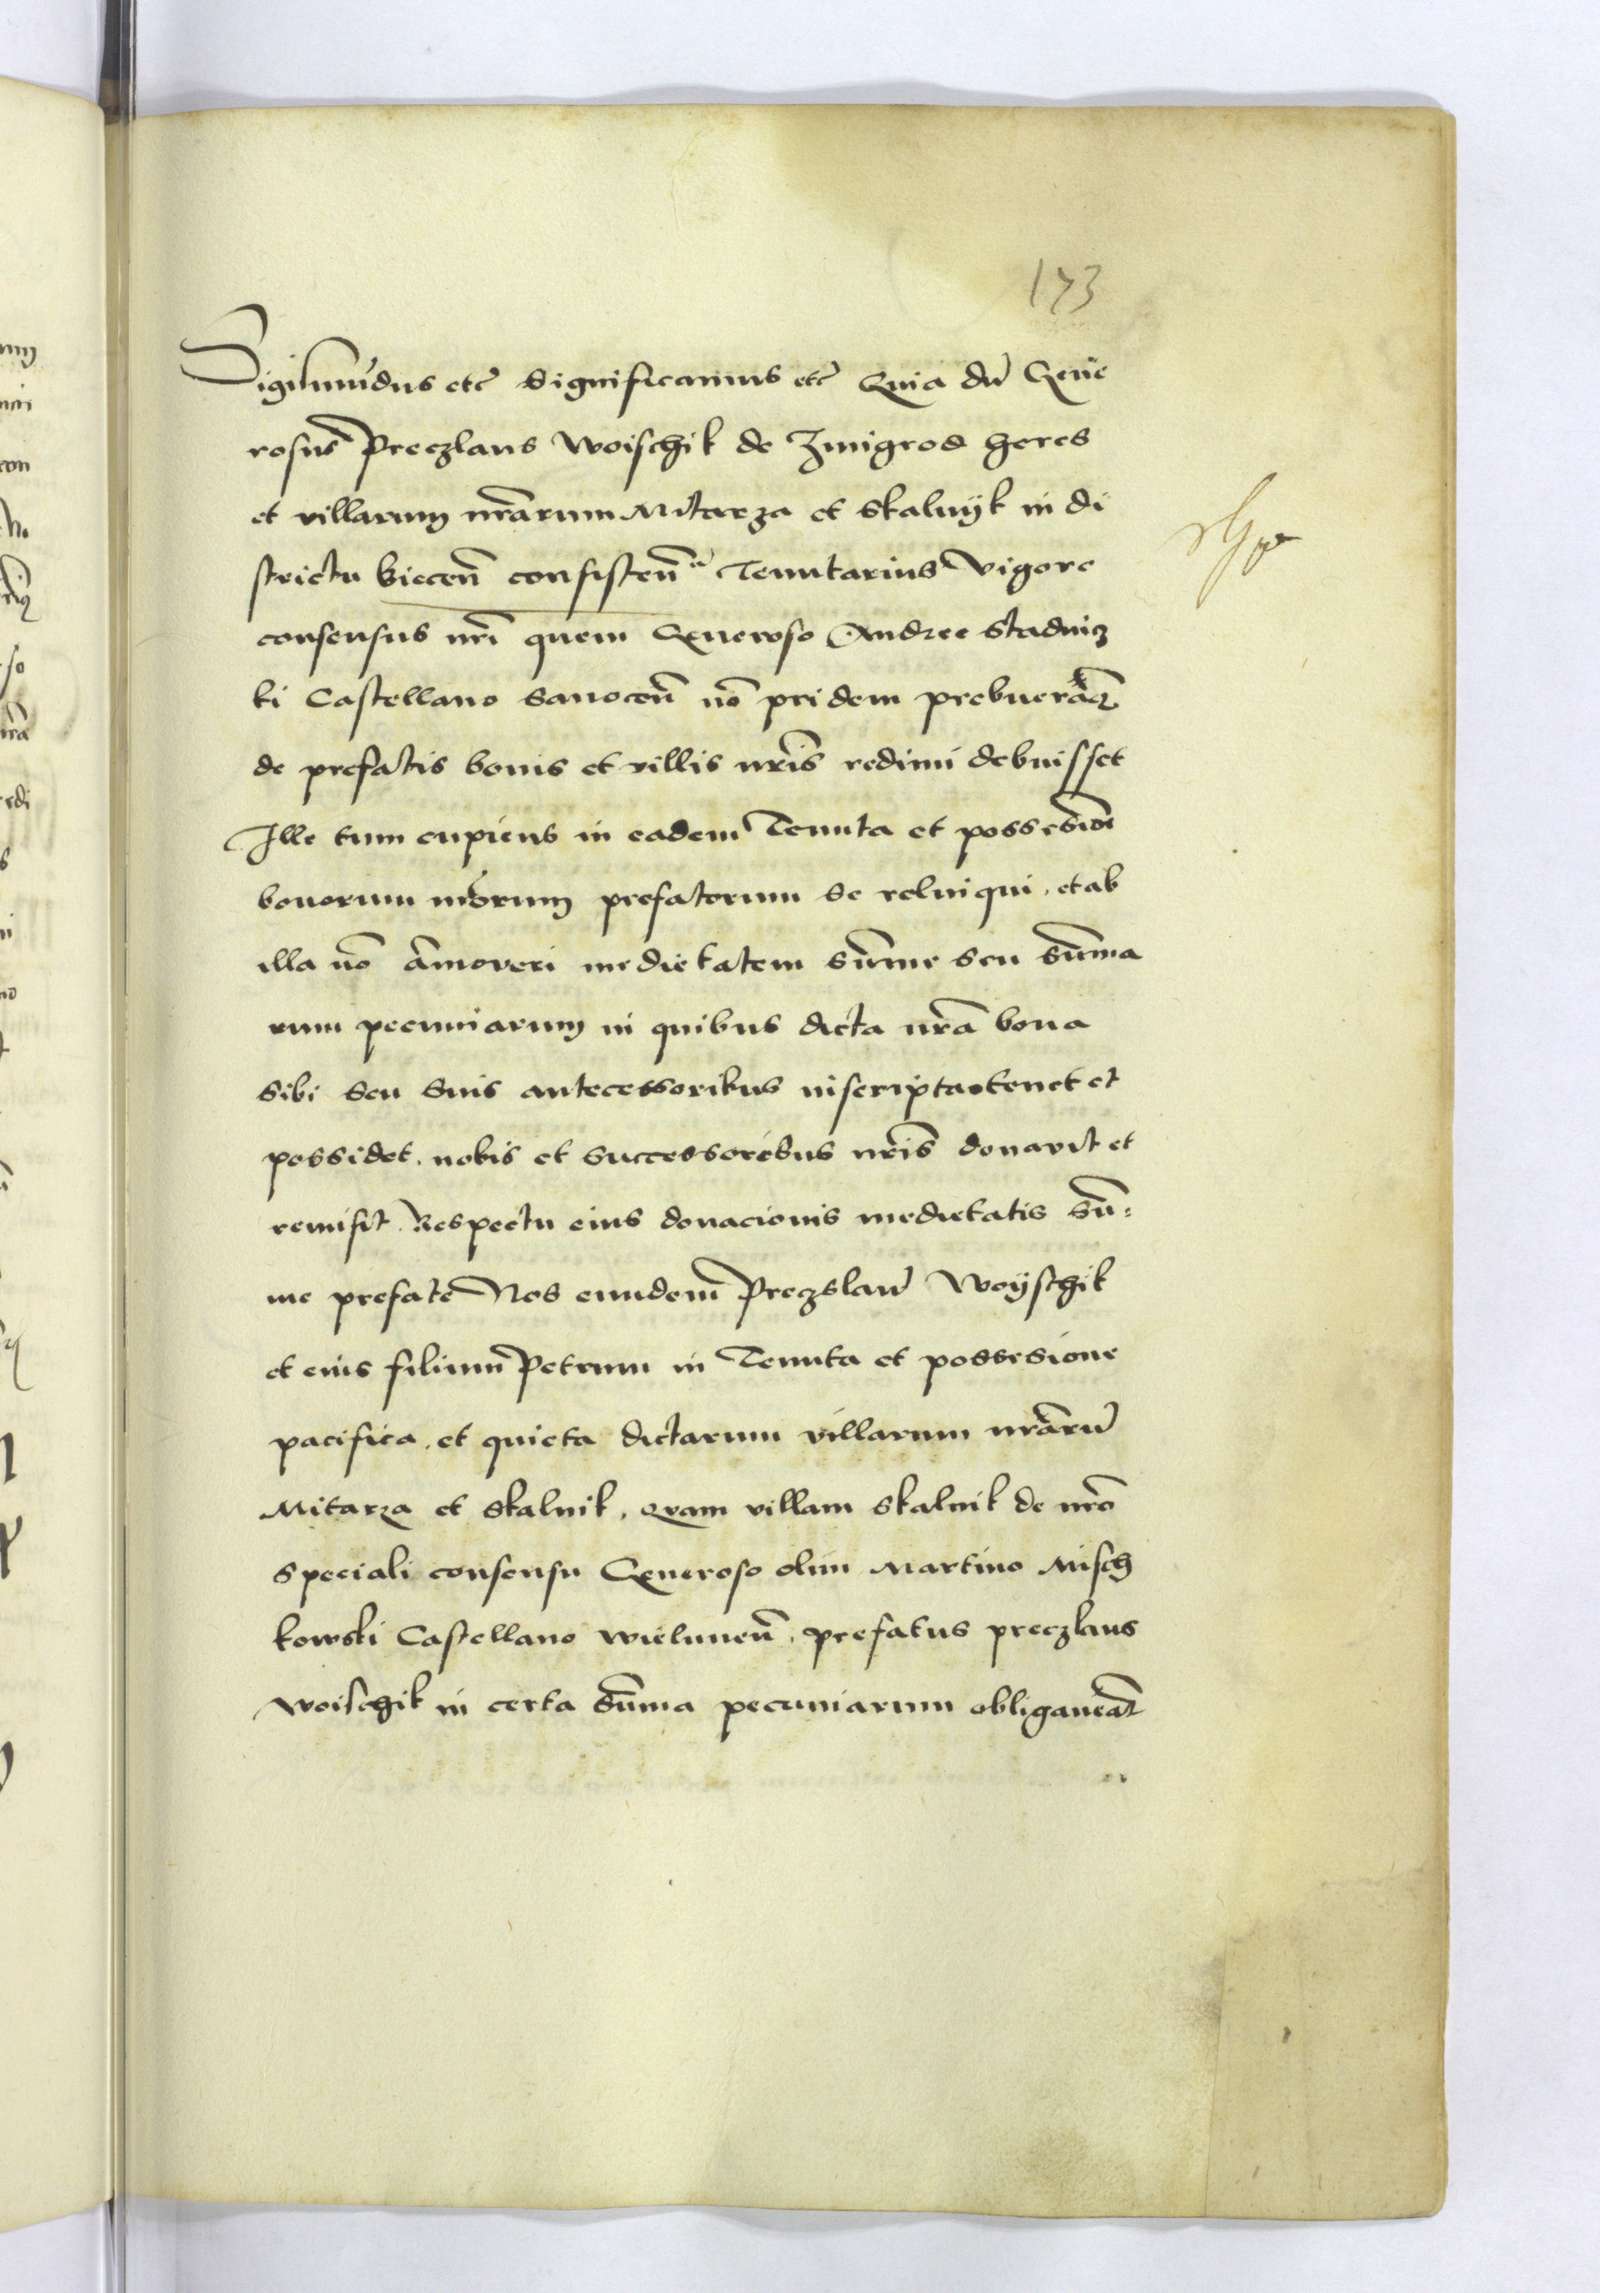 173
Sigismūdus etc̄ Significamus etc̄ Quia dū Gene
rosus Preczlaus Woischik de Zmigrod heres
et villarum nr̄arum Mitarza et Skalnÿk in di
strictu biecen̄ consisten̄ Tenutarius Vigore
consensus nr̄i quem Generoso Andree Stadnicz
ki Castellano Sanocen̄ nō pridem prebueram̄
de prefatis bonis et villis nr̄is redimi debuisset
Ille tum cupiens in eadem Tenuta et possesiōe
bonorum nr̄orum prefatorum se relinqui, et ab
illa nō am̄overi medietatem Sum̄e seu Sum̄a
rum pecuniarum in quibus dicta nr̄a bona
sibi seu suis antecessoribus inscripta tenet et
possidet, nobis et successoribus nr̄is donavit et
remisit. Respectu eius donacionis medietatis Sum̄:
me prefate Nos eundem Preczslaū Woÿschik
et eius filium Petrum in Tenuta et possesione
pacifica, et quieta dictarum villarum nr̄arū
Mitarza et Skalnik, Quam villam Skalnik de nr̄o
speciali consensu Generoso olim Martino Misch
kowski Castellano Wielunen̄, prefatus preczlaus
Woischik in certa Sum̄a pecuniarum obligaverat